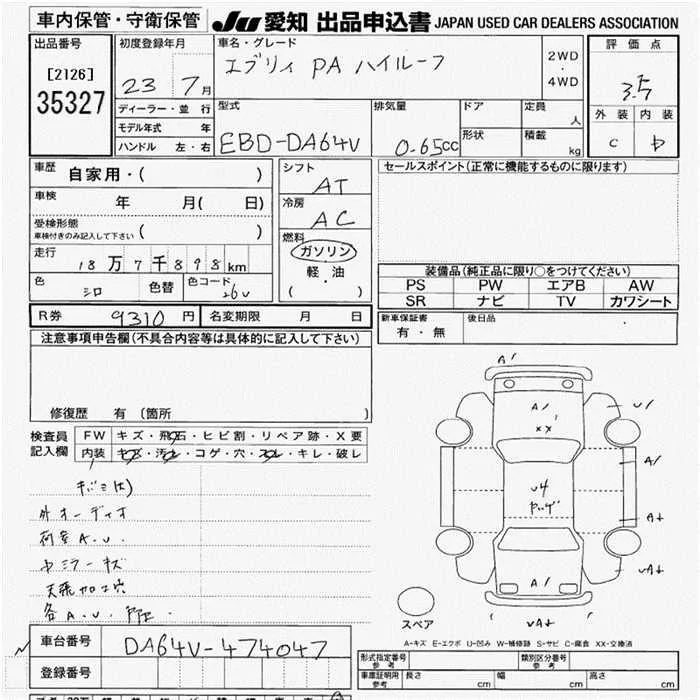 車内保管・守衛保管 JU 愛知 出品申込書 JAPAN USED CAR DEALERS ASSOCIATION
出品番号
[2126]
35327
初度登録年月
23 7月
ディーラー・並 行
モデル年式 年
ハンドル 左・右
車名・グレード
エブリィ PA ハイルーフ
2WD
・
4WD
評価点
3.5
外装 内装
C b
型式
EBD-DA64V
排気量
0.65CC
ドア
形状
定員
人
積載
kg
車歴 自家用・( )
車検 年 月( 日)
受検形態
車検付きのみ記入して下さい ( )
走行
18万7千898km
色 シロ 色替 色コード 26V
シフト
AT
冷房
AC
燃料
ガソリン
軽・油
( )
セールスポイント(正常に機能するものに限ります)
装備品(純正品に限り○をつけてください)
PS PW エアB AW
SR ナビ TV カワシート
R券 9310円 名変期限 月 日
新車保証書
有・無
後日品
注意事項申告欄(不具合内容等は具体的に記入して下さい)
修復歴 有 (箇所 )
検査員
記入欄
FW キズ・飛石・ヒビ割・リペア跡・X要
内装 キズ・汚れ・コゲ・穴・スレ・キレ・破レ
外オーディオ
荷室A.U.
中ミラーキズ
天張加工穴
各A.U.
A/
A/
XX
U/
A/
U4
A↓
A/
UA↓
UA↓
スペア
A-キズ E-エクボ U-凹み W-補修跡 S-サビ C-腐食 XX-交換済
車台番号 DA64V-474047
登録番号
形式指定番号
参考
類別区分番号
参考
車庫証明用
参考
長さ cm 幅 cm 高さ cm